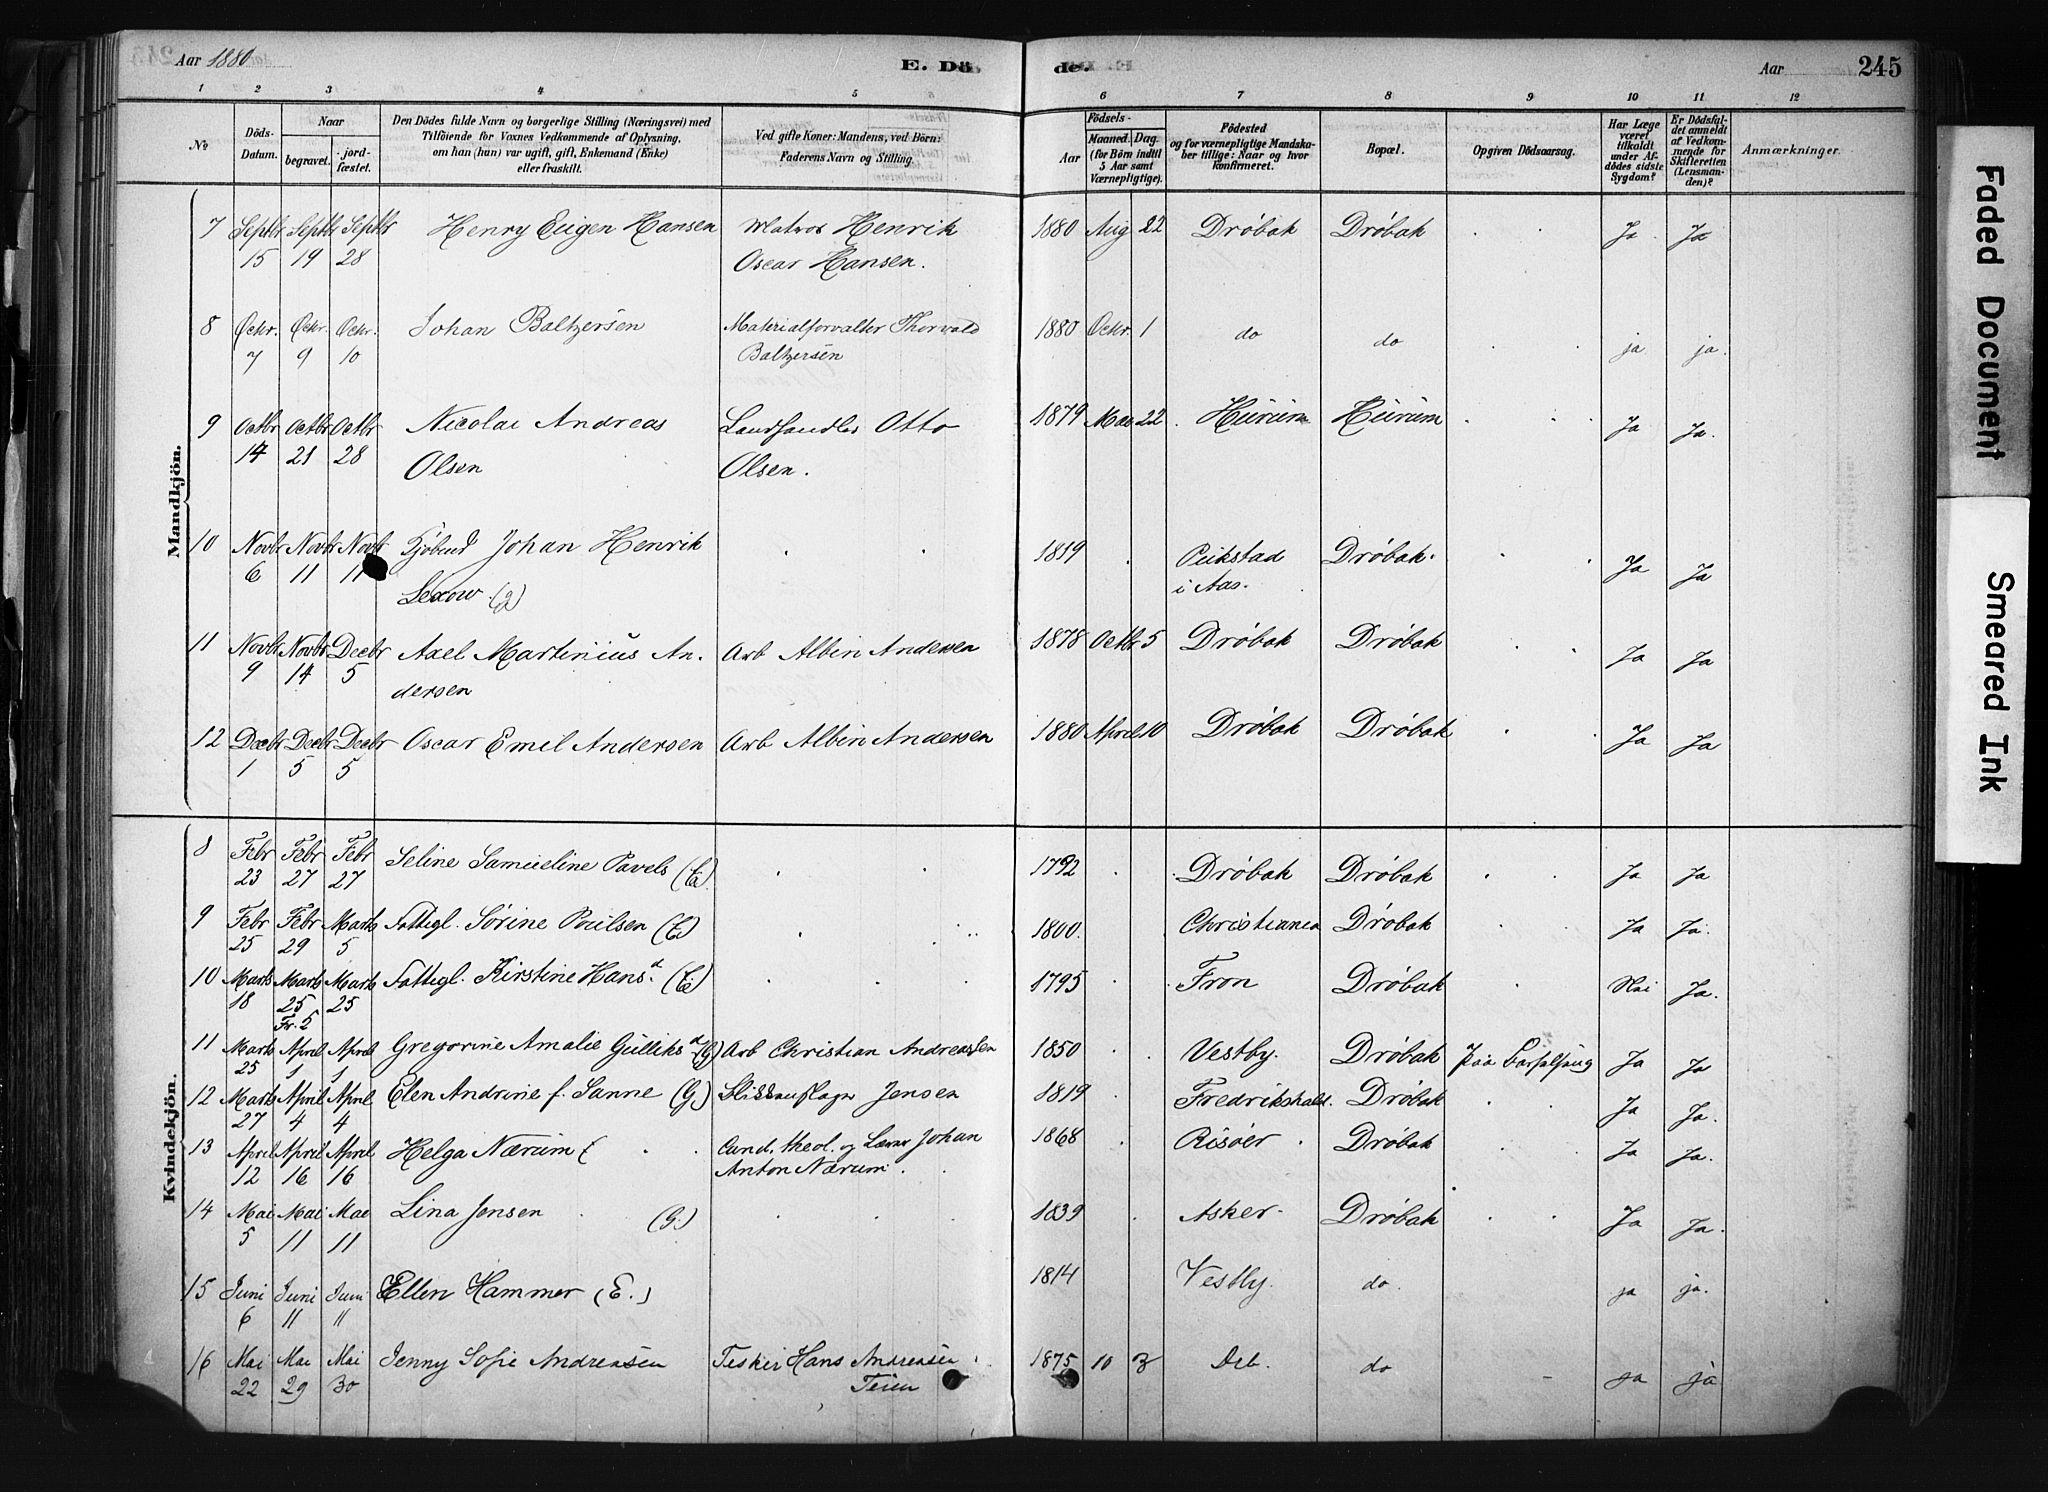 Aar 1880
E. Dö
de.
Aar
245
1 2 3 4 5 6 7 8 9 10 11 12
No
Döds-
Datum.
Naar
begravet.
jord-
fæstet.
Den Dödes fulde Navn og borgerlige Stilling (Næringsvei) med
Tilföiende for Voxnes Vedkommende af Oplysning,
om han (hun) var ugift, gift, Enkemand (Enke)
eller fraskilt.
Ved gifte Koner: Mandens, ved Börn:
Faderens Navn og Stilling.
Födsels-
Aar
Maaned. Dag.
(for Börn indtil
5 Aar samt
Værnepligtige).
Födested
og for værnepligtige Mandska-
ber tillige: Naar og hvor
konfirmeret.
Bopæl.
Opgiven Dödsaarsag.
Har Læge
været
tilkaldt
under Af-
dödes sidste
Sygdom?
Er Dödsfal-
det anmeldt
af Vedkom-
mende for
Skifteretten
(Lensman-
den)?
Anmærkninger.
Mandkjön.
7 Septbr Septbr Septbr Henry Eugen Hansen Matros Henrik 1880 Aug 22 Drøbak Drøbak Ja Ja
15 19 28 Oscar Hansen.
8 Octr. Octr. Octr. Johan Baltzersen Materialforvalter Thorvald 1880 Octr. 1 do do ja ja.
7 9 10 Baltzersen
9 Octbr Octbr Octbr Nicolai Andreas Landhandler Otto 1879 Mai 22 Hurum Hurum Ja Ja.
14 21 28 Olsen Olsen.
10 Novbr Novbr Novbr Kjøbmd Johan Henrik 1819 Pukstad Drøbak. Ja Ja
6 11 11 Lexow. (g) i Aas.
11 Novbr Novbr Decbr Axel Martinius An- Arb Albin Andersen 1878 Octbr 5 Drøbak Drøbak Ja Ja
9 14 5 dersen
12 Decbr Decbr Decbr Oscar Emil Andersen Arb Albin Andersen 1880 April 10 Drøbak Drøbak Ja Ja
1 5 5
Kvindekjön.
8 Febr Febr Febr Seline Samueline Pavels (E). 1792 Drøbak Drøbak Ja Ja
23 27 27
9 Febr Febr Marts Fattigl. Sørine Poulsen (E) 1800. Christiania Drøbak Ja Ja.
25 29 5
10 Marts Marts Marts Fattigl. Kirstine Hansd. (E) 1795 Fron Drøbak Nei Ja.
18 25 25
Fr. 5
11 Marts April April Gregorine Amalie Gulliksd (G) Arb Christian Andreassen 1850 Vestby. Drøbak paa Barselseng Ja Ja
25 1 1
12 Marts April April Elen Andrine f. Sanne (G.) Jensen 1819 Fredrikshald. Drøbak Ja Ja.
27 4 4
13 April April April Helga Nærum ( Cand. theol. og Lærer Johan 1868 Risøer Drøbak Ja Ja.
12 16 16 Anton Nærum.
14 Mai Mai Mai Lina Jensen (G.) 1839 Asker. Drøbak Ja Ja.
5 11 11
15 Juni Juni Juni Ellen Hammer (E.) 1814 Vestby. do. ja ja.
6 11 11
16 Mai Mai Mai Jenny Sofie Andreasen Fisker Hans Andreasen 1875 10 3 Drb. do ja ja
22 29 30 Teien
Faded Document
Smeared Ink